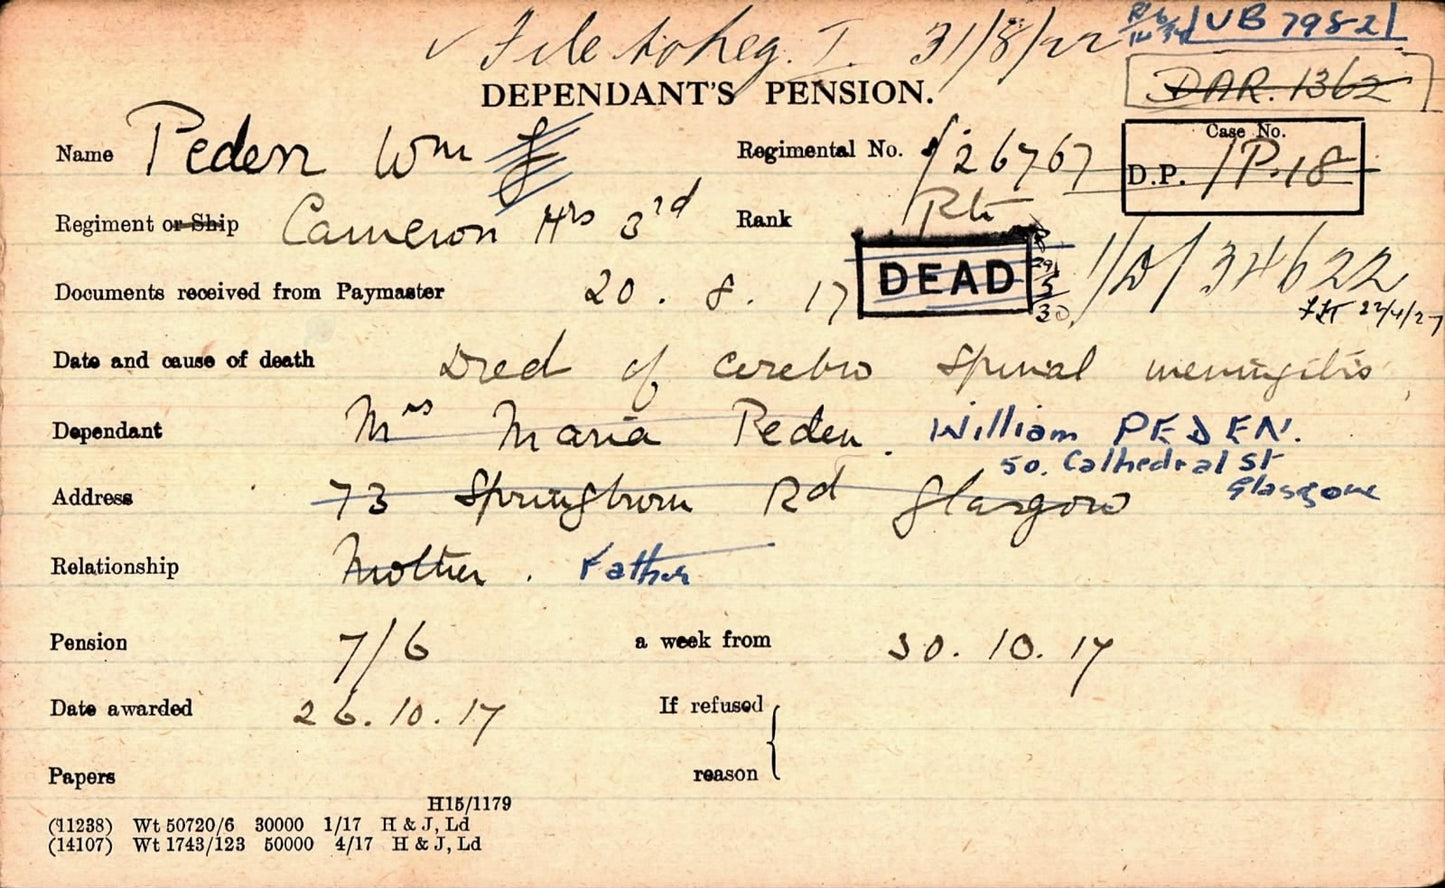 ✓ File to Reg. I. 31/8/22 UB 7982
DAR. 1362
DEPENDANT'S PENSION.
Name Peden Wm J Regimental No. S/26767
Case No.
D.P. 1/P.18
Regiment or Ship Cameron Hrs 3rd Rank Pte
Documents received from Paymaster 20.8.17 DEAD 29/5/30 1/D/34622
22/4/27
Date and cause of death Died of cerebro spinal meningitis
Dependant Mrs Maria Peden. William PEDEN.
50. Cathedral St
Glasgow
Address 73 Springburn Rd Glasgow
Relationship Mother. Father
Pension 7/6 a week from 30.10.17
Date awarded 26.10.17 If refused
Papers reason
H15/1179
(11238) Wt 50720/6 30000 1/17 H & J, Ld
(14107) Wt 1743/123 50000 4/17 H & J, Ld